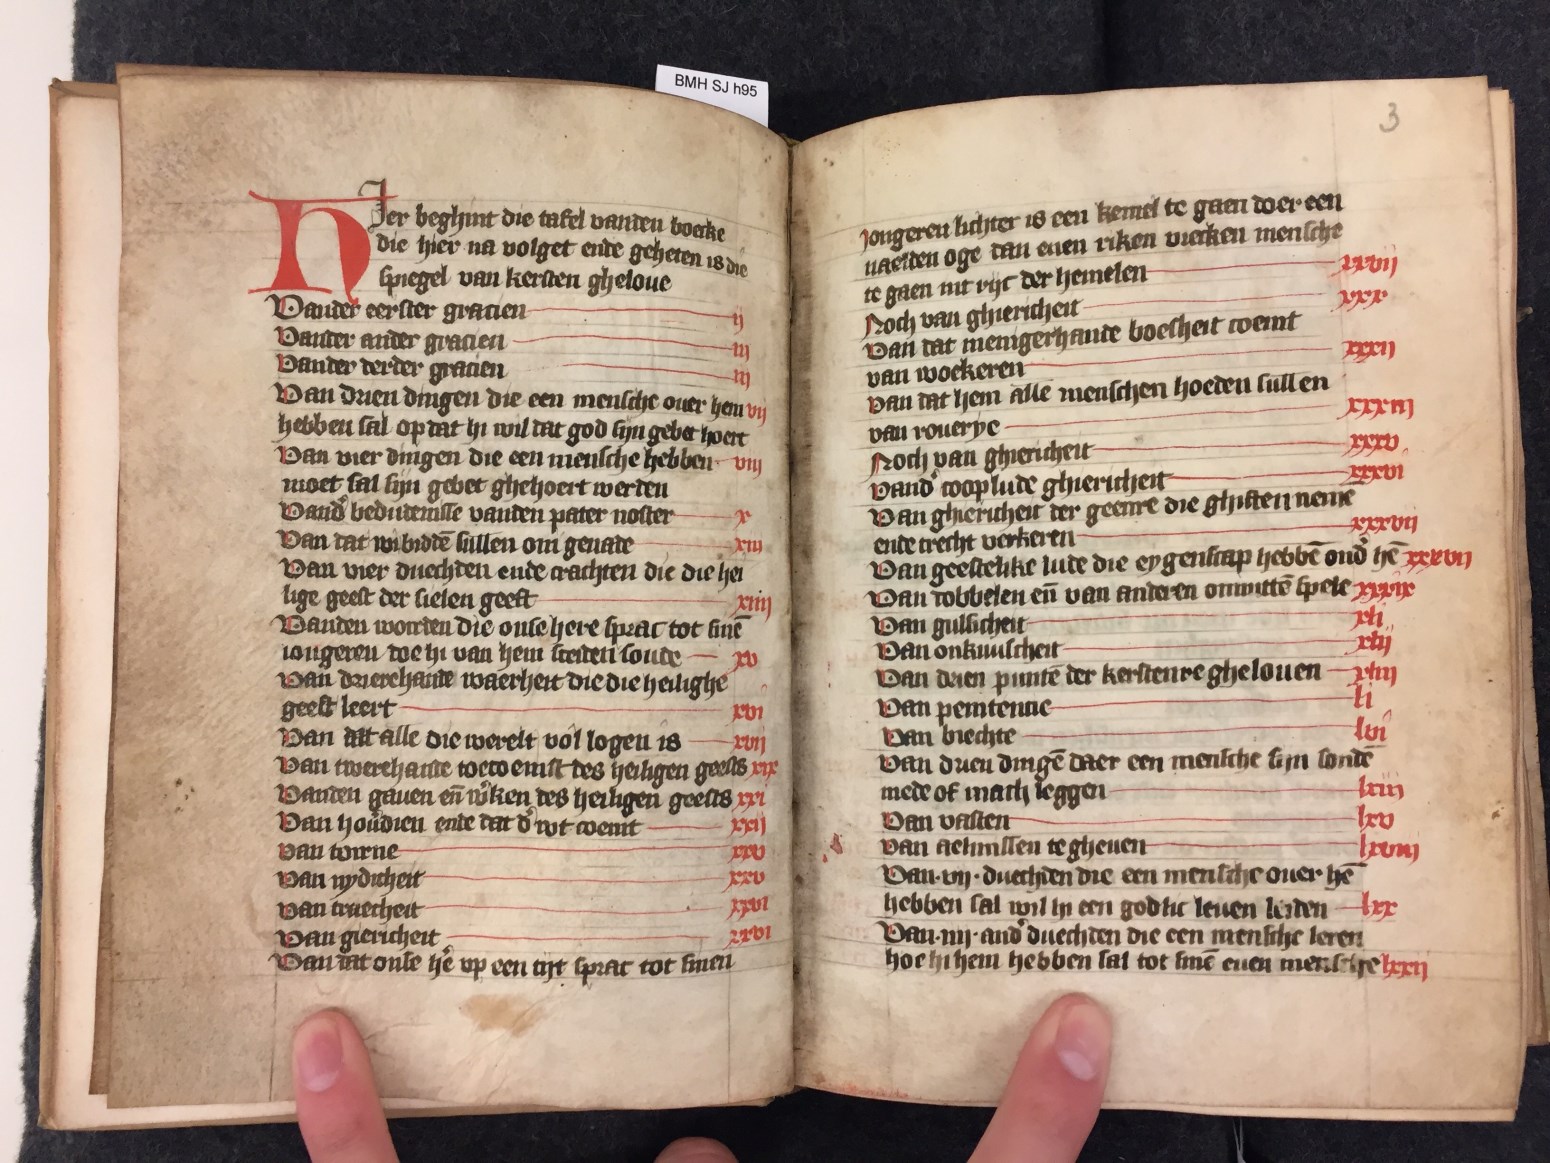 BMH SJ h95
Hier beghint die tafel vanden boecke
die hier na volget ende geheten is die
spiegel van kersten gheloue
Vander eerster gracien ij
Vander ander gracien iij
Vander derder gracien iij
Van drien dingen die een mensche ouer hem vij
hebben sal op dat hi wil dat god sijn gebet hoert
Van vier dingen die een mensche hebben viij
moet sal sijn gebet ghehoert werden
Vand' bedudenisse vanden pater noster x
Van dat wi biddē sullen om genade xiij
Van vier duechden ende crachten die die hei
lige geest der sielen geeft xiiij
Vanden worden die onse here sprac tot sinē
iongeren doe hi van hem sceiden soude xv
Van drierehande waerheit die die heilighe
geest leert xvi
Van dat alle die werelt vol logen is xvij
Van twerehande toecoemst des heiligen geests xix
Vanden gauen eñ w'ken des heiligen geests xxi
Van houerdien ende dat d' wt coemt xxij
Van torne xxv
Van nydicheit xxv
Van traecheit xxvi
Van giericheit xxvi
Van dat onse he' op een tijt sprac tot sinen
3
iongeren lichter is een kemel te gaen doer een
naelden oge dan enen riken vrecken mensche
te gaen int rijc der hemelen xxvij
Noch van ghiericheit xxx
Van dat menigerhande boesheit coemt
van woekeren xxxij
Van dat hem alle menschen hoeden sullen
van rouerye xxxiij
Noch van ghiericheit xxxv
Vand' cooplude ghiericheit xxxvi
Van ghiericheit der geenre die ghiften nemē
ende trecht verkeren xxxvij
Van geestelike lude die eygenscap hebbē ond' hē xxxvij
Van dobbelen eñ van anderen onnuttē spele xxxix
Van gulsicheit xli
Van onkuuscheit xlij
Van derien puntē der kerstenre ghelouen xliij
Van penitencie li
Van biechte lvi
Van drien dingē daer een mensche sijn sondē
mede of mach leggen lxiij
Van vasten lxv
Van aelmissen te gheuen lxviij
Van .vij. duechden die een mensche ouer hē
hebben sal wil hi een godlic leuen leiden lxx
Van .iiij. and' duechden die een mensche leren
hoe hi hem hebben sal tot sinē euen mensche lxxij